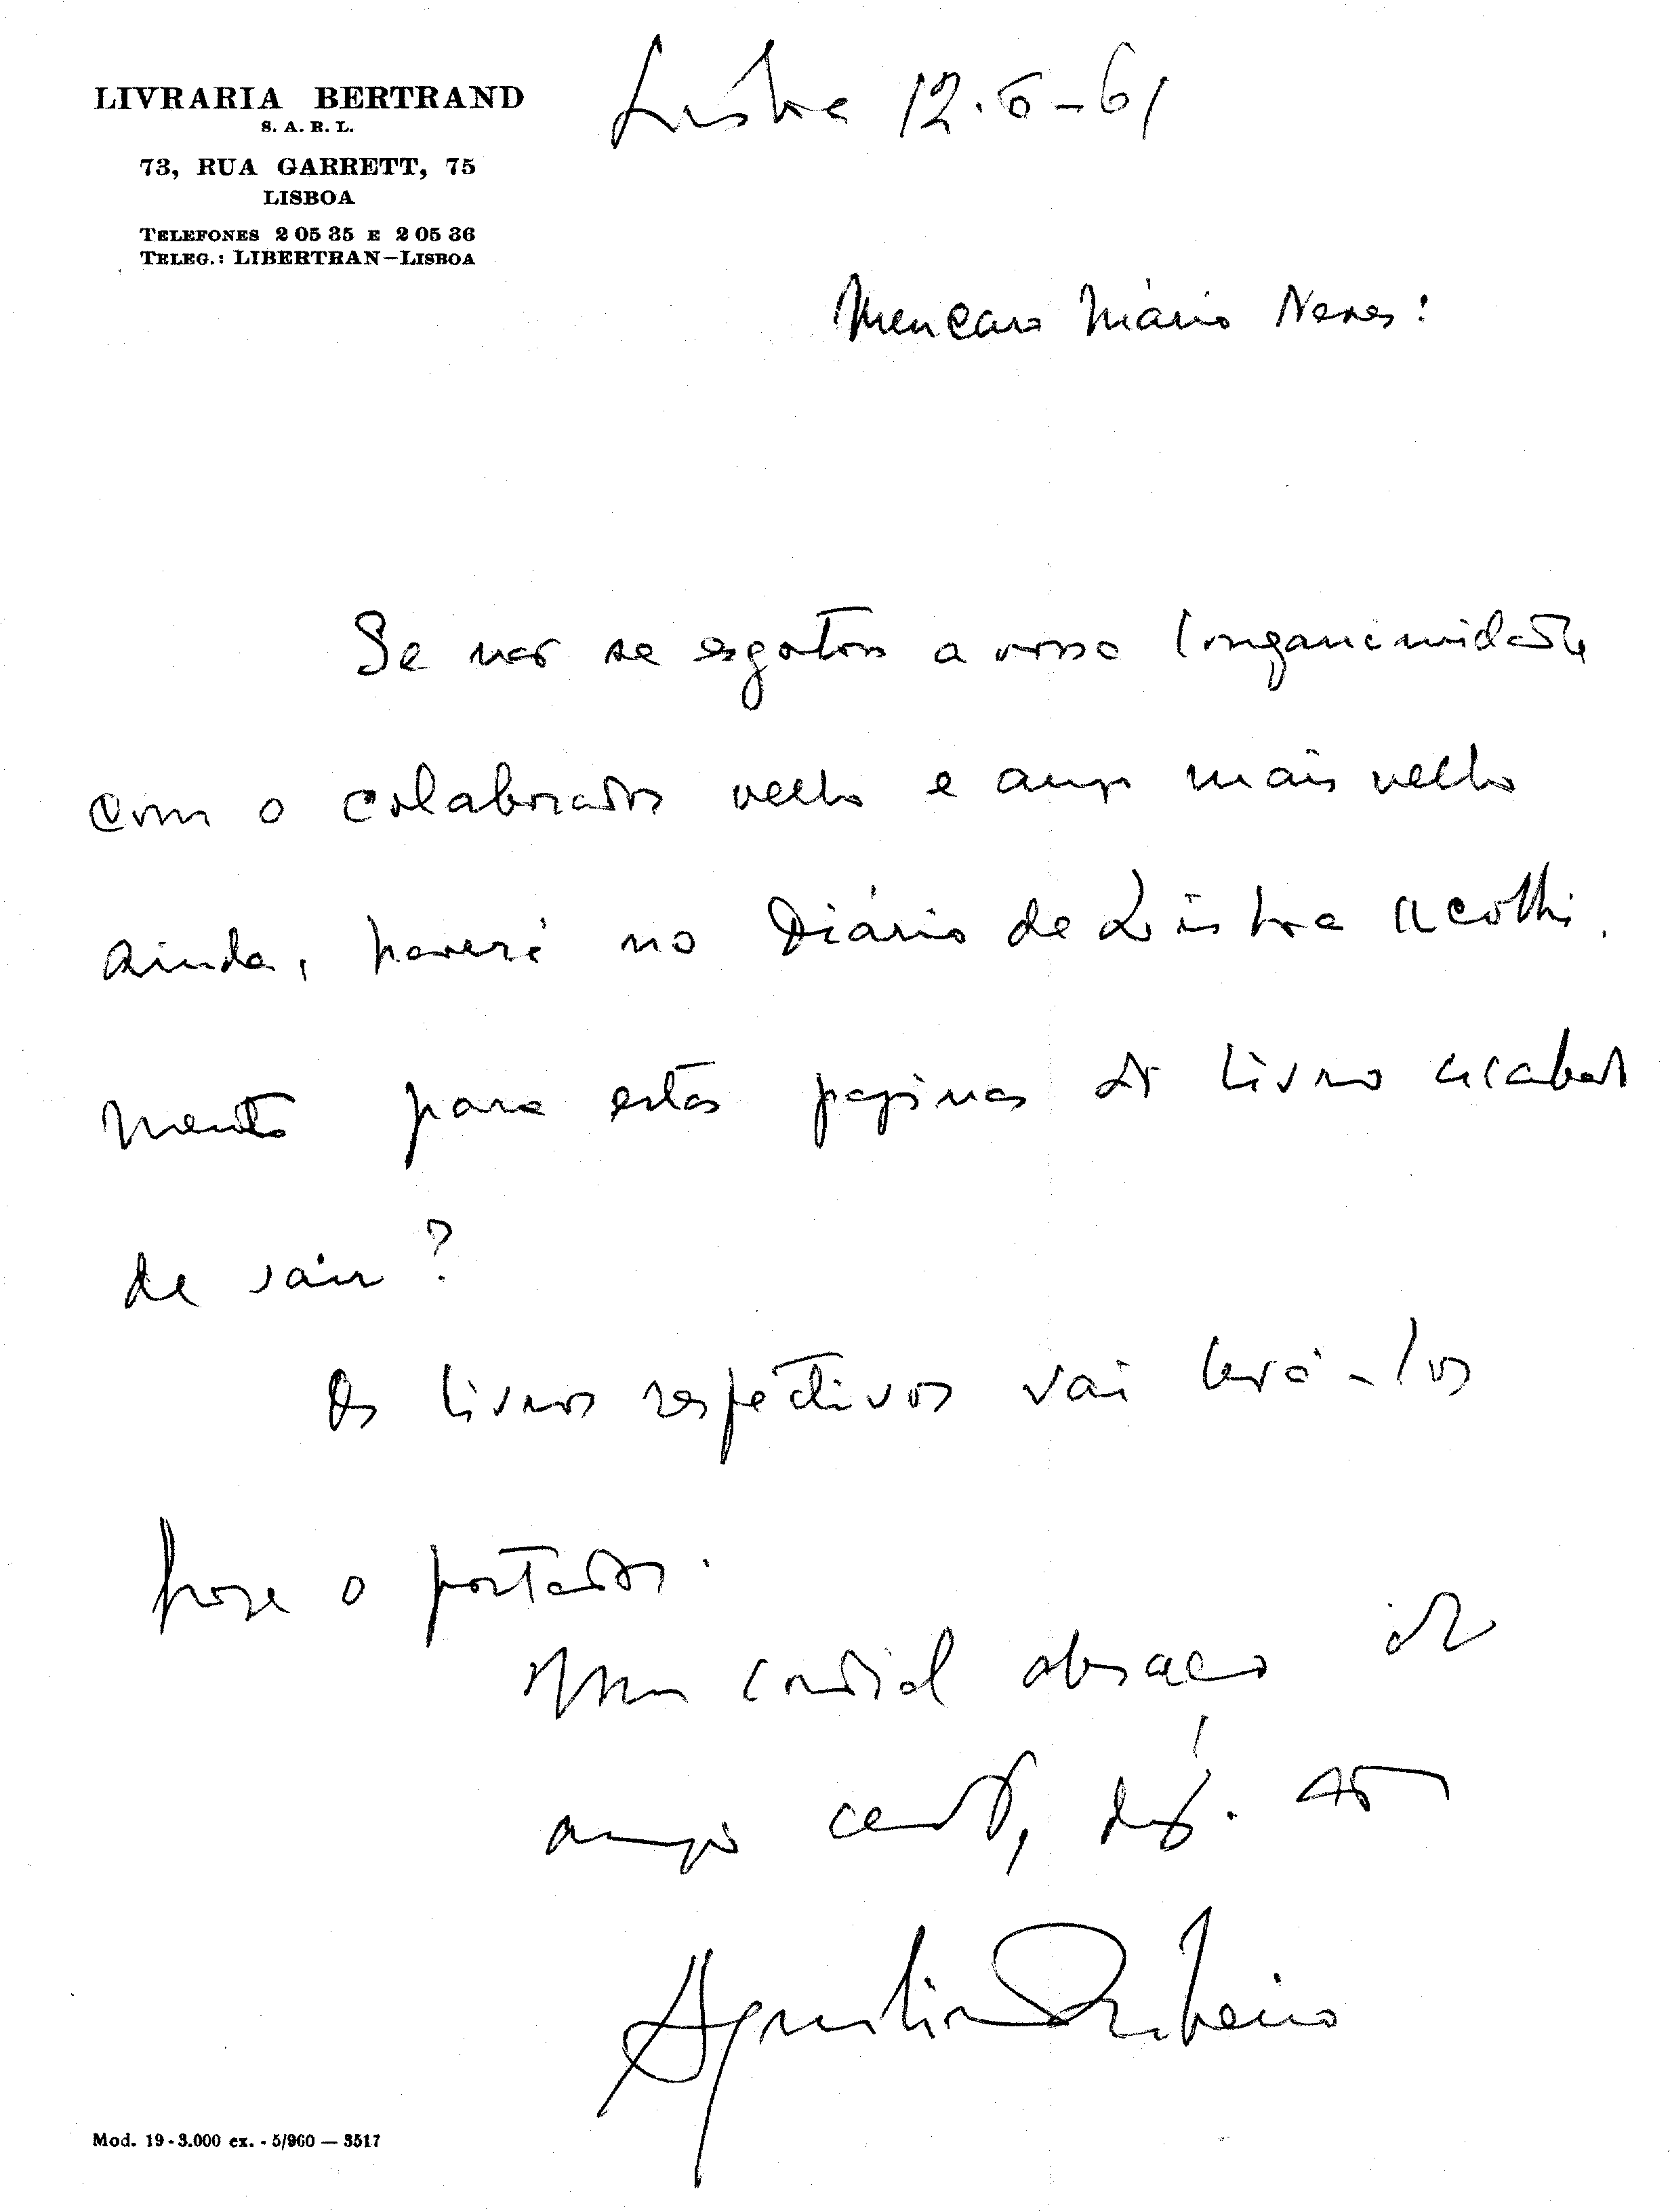 LIVRARIA BERTRAND
S. A. R. L.
73, RUA GARRETT, 75
LISBOA
TELEFONES 2 05 35 E 2 05 36
TELEG.: LIBERTRAN—LISBOA
Lisboa 12.6-61
Meu caro Mário Neves:
Se não se esgotou a vossa longanimidade
com o colaborador velho e amigo mais velho
ainda, haverá no Diário de Lisboa acolhi.
mento para estas paginas do livro acabado
de sair?
Os livros respectivos vai levá-los
hoje o portador.
Um cordial abraço do
amigo certo,
Aquilino Ribeiro
Mod. 19 - 3.000 ex. - 5/960 — 3517